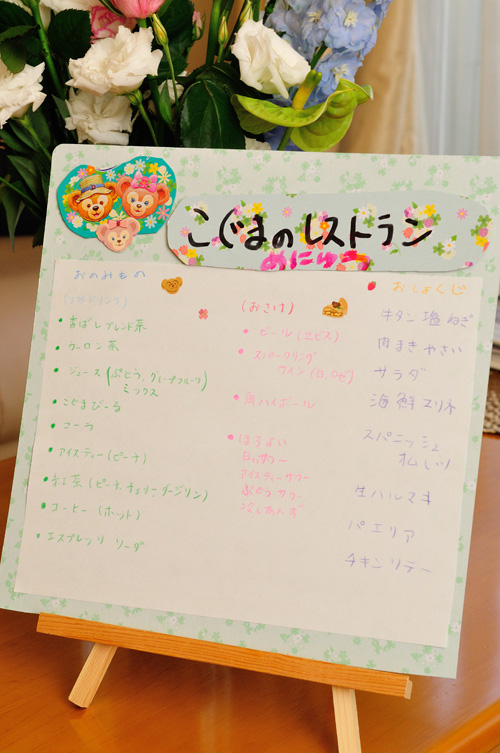 こぐまのレストラン
めにゅう
おのみもの
(ソフトドリンク)
• 香ばしブレンド茶
• ウーロン茶
• ジュース(ぶどう、グレープフルーツ)
ミックス
• こぐまびーる
• コーラ
• アイスティー(ピーチ)
• 紅茶(ピーチ、チェリー、ダージリン)
• コーヒー(ホット)
• エスプレッソ ソーダ
(おさけ)
• ビール(エビス)
• スパークリング
ワイン(白、ロゼ)
• 角ハイボール
• ほろよい
白いサワー
アイスティーサワー
ぶどうサワー
おしょくじ
牛タン塩ねぎ
肉まきやさい
サラダ
海鮮マリネ
スパニッシュ
オムレツ
生ハルマキ
パエリア
チキンソテー